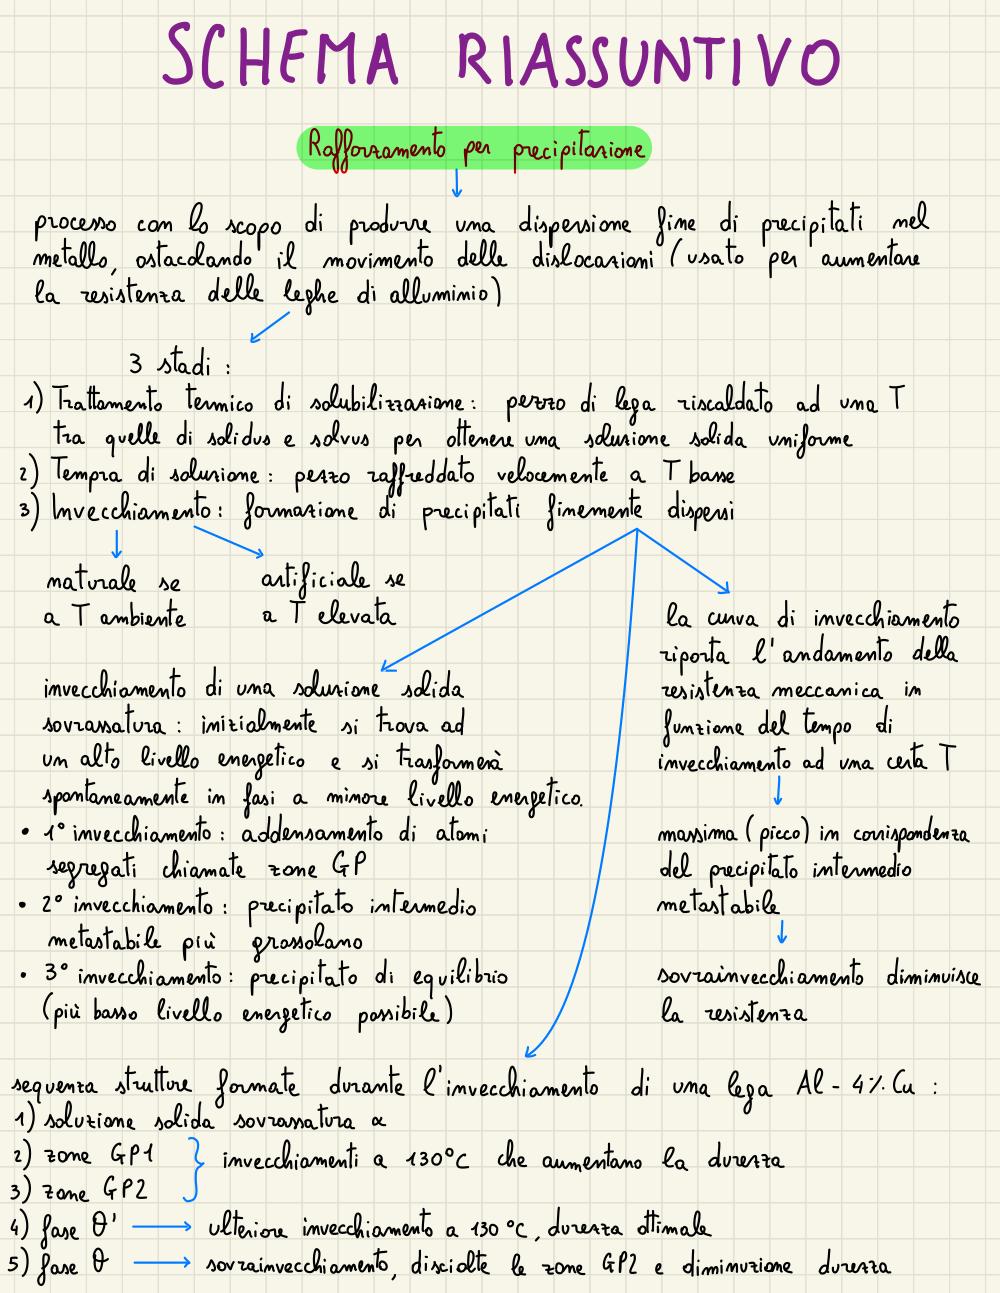 SCHEMA RIASSUNTIVO
Rafforzamento per precipitazione
processo con lo scopo di produrre una dispersione fine di precipitati nel
metallo, ostacolando il movimento delle dislocazioni (usato per aumentare
la resistenza delle leghe di alluminio)
3 stadi :
1) Trattamento termico di solubilizzazione : pezzo di lega riscaldato ad una T
tra quelle di solidus e solvus per ottenere una soluzione solida uniforme
2) Tempra di soluzione : pezzo raffreddato velocemente a T basse
3) Invecchiamento : formazione di precipitati finemente dispersi
naturale se
a T ambiente
artificiale se
a T elevata
invecchiamento di una soluzione solida
sovrassatura : inizialmente si trova ad
un alto livello energetico e si trasformerà
spontaneamente in fasi a minore livello energetico.
• 1° invecchiamento : addensamento di atomi
segregati chiamate zone GP
• 2° invecchiamento : precipitato intermedio
metastabile più grossolano
• 3° invecchiamento : precipitato di equilibrio
(più basso livello energetico possibile)
la curva di invecchiamento
riporta l'andamento della
resistenza meccanica in
funzione del tempo di
invecchiamento ad una certa T
massima (picco) in corrispondenza
del precipitato intermedio
metastabile
sovrainvecchiamento diminuisce
la resistenza
sequenza strutture formate durante l'invecchiamento di una lega Al - 4% Cu :
1) soluzione solida sovrassatura α
2) zone GP1
3) zone GP2
invecchiamenti a 130°C che aumentano la durezza
4) fase θ' → ulteriore invecchiamento a 130°C, durezza ottimale
5) fase θ → sovrainvecchiamento, disciolte le zone GP2 e diminuzione durezza